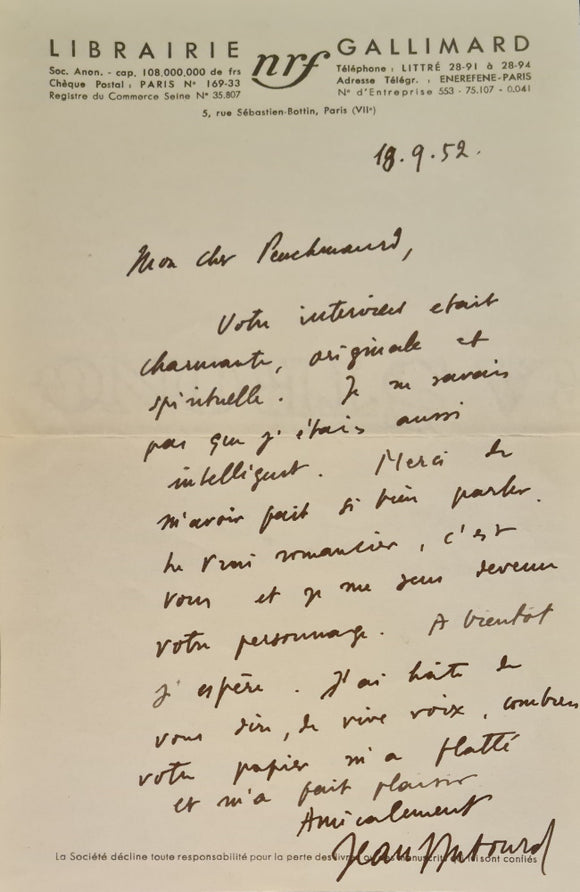 LIBRAIRIE nrf GALLIMARD
Soc. Anon. - cap. 108.000.000 de frs
Chèque Postal : PARIS N° 169-33
Registre du Commerce Seine N° 35.807
Téléphone : LITTRÉ 28-91 à 28-94
Adresse Télégr. : ENEREFENE-PARIS
N° d'Entreprise 553 - 75.107 - 0.041
5, rue Sébastien-Bottin, Paris (VIIe)
18.9.52.
Mon cher Peuchmaurd,
Votre interview était
charmante, originale et
spirituelle. Je ne savais
pas que j'étais aussi
intelligent. Merci de
m'avoir fait si bien parler.
Le vrai romancier, c'est
vous et je me sens devenu
votre personnage. A bientôt
j'espère. J'ai hâte de
vous dire, de vive voix, combien
votre papier m'a flatté
et m'a fait plaisir
Amicalement
Jean Dutourd
La Société décline toute responsabilité pour la perte des livres ou des manuscrits qui lui sont confiés